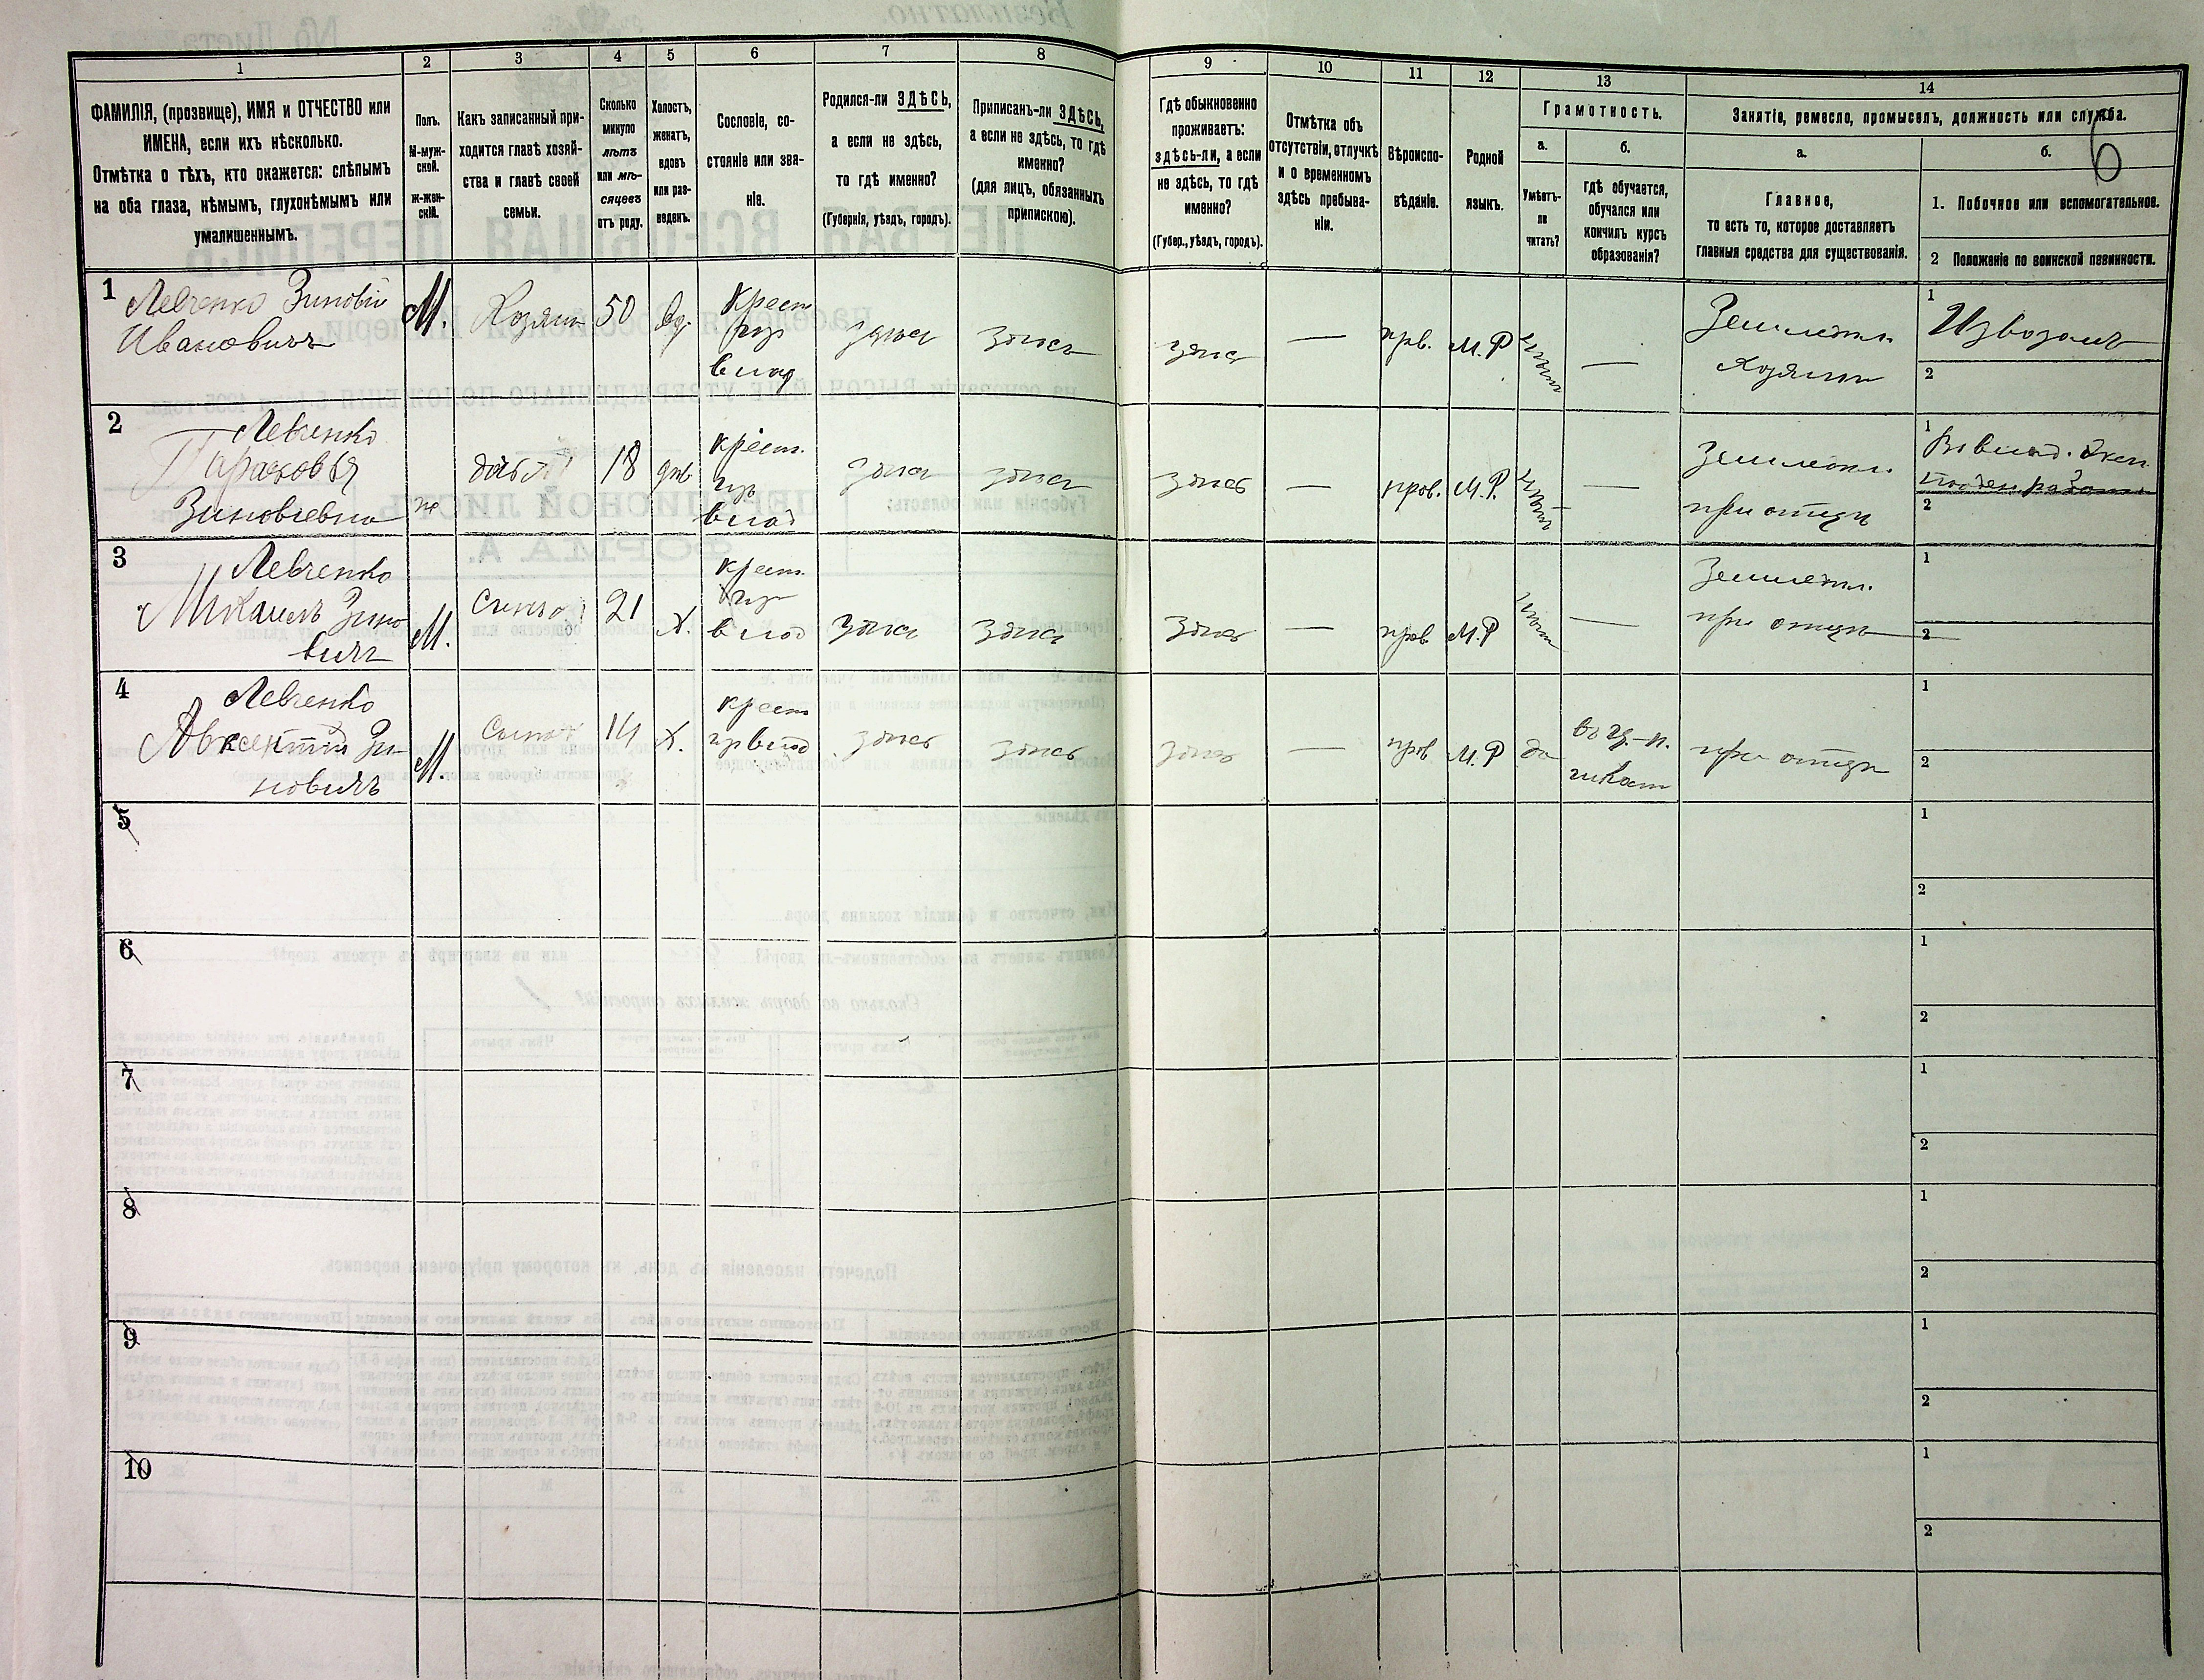 1
2
3
4
5
6
7
8
9
10
11
12
13
14
ФАМИЛІЯ, (прозвище), ИМЯ и ОТЧЕСТВО или
ИМЕНА, если ихъ нѣсколько.
Отмѣтка о тѣхъ, кто окажется: слѣпымъ
на оба глаза, нѣмымъ, глухонѣмымъ или
умалишеннымъ.
Полъ.
М-муж-
ской.
ж-жен-
скій.
Какъ записанный при-
ходится главѣ хозяй-
ства и главѣ своей
семьи.
Сколько
минуло
лѣтъ
или мѣ-
сяцевъ
отъ роду.
Холостъ,
женатъ,
вдовъ
или раз-
веденъ.
Сословіе, со-
стояніе или зва-
ніе.
Родился-ли ЗДѢСЬ,
а если не здѣсь,
то гдѣ именно?
(Губернія, уѣздъ, городъ).
Приписанъ-ли ЗДѢСЬ,
а если не здѣсь, то гдѣ
именно?
(для лицъ, обязанныхъ
припискою).
Гдѣ обыкновенно
проживаетъ:
здѣсь-ли, а если
не здѣсь, то гдѣ
именно?
(Губер., уѣздъ, городъ).
Отмѣтка объ
отсутствіи, отлучкѣ
и о временномъ
здѣсь пребыва-
ніи.
Вѣроиспо-
вѣданіе.
Родной
языкъ.
Грамотность.
а.
Умѣетъ-
ли
читать?
б.
гдѣ обучается,
обучался или
кончилъ курсъ
образованія?
Занятіе, ремесло, промыселъ, должность или служба.
6
а.
Главное,
то есть то, которое доставляетъ
главныя средства для существованія.
б.
1. Побочное или вспомогательное.
2 Положеніе по воинской повинности.
1
Левченко Зиновій
Ивановичъ
М.
Хозяинъ
50
вд.
крест
из
влад
здѣсь
здѣсь
здѣсь
—
прв.
М.Р
нѣтъ
—
Земледѣл.
Хозяинъ
1
Извозомъ
2
2
Левченко
Парасковья
Зиновіевна
ж
дочь
18
дѣв
крест.
из
влад
здѣсь
здѣсь
здѣсь
—
прав.
М.Р.
нѣтъ
—
Земледѣл.
при отцѣ
1
2
3
Левченко
Михаилъ Зино
вичъ
М.
Сынъ
21
Х.
крест.
из
влад
здѣсь
здѣсь
здѣсь
—
прав
М.Р
нѣтъ
—
Земледѣл.
при отцѣ
1
2
4
Левченко
Авксентій Зи-
новичъ
М.
Сынъ
14
Х.
крест
из влад
здѣсь
здѣсь
здѣсь
—
прав
М.Р
да
въ ц.-п.
школѣ
при отцѣ
1
2
5
1
2
6
1
2
7
1
2
8
1
2
9
1
2
10
1
2